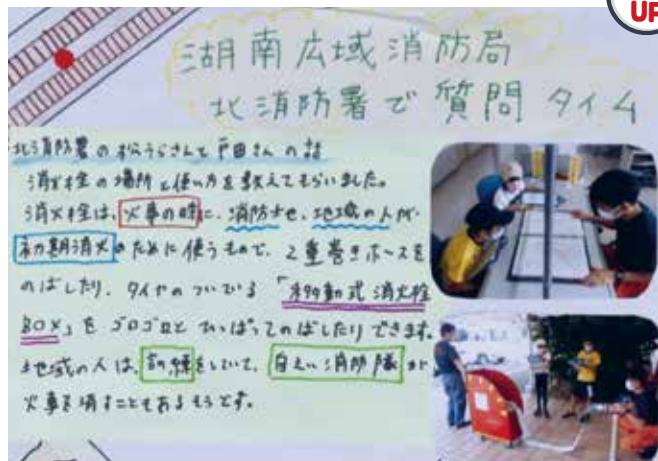 UP
湖南広域消防局
北消防署で質問タイム
北消防署の松うらさんと戸田さんの話
消火栓の場所と使い方を教えてもらいました。
消火栓は、火事の時に、消防士や、地域の人が、
初期消火のために使うもので、2重巻きホースを
のばしたり、タイヤのついている「移動式消火栓
BOX」をゴロゴロとひっぱってのばしたりできます。
地域の人は、訓練をしていて、自えい消防隊が
火事を消すこともあるそうです。